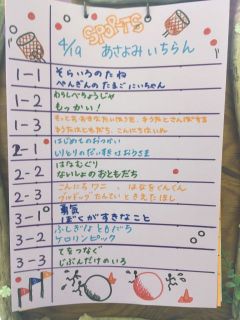 SPORTS
4/19 あさよみ いちらん
1-1 そらいろのたね
ぺんぎんのたまごにいちゃん
1-2 わらしべちょうじゃ
もっかい!
1-3
2-1 はじめてのおつかい
しりとりのだいすきなおうさま
2-2 はなをむぐり
ないしょのおともだち
2-3 こんにちワニ、はなをくんくん
ブルドッグたんていときえたほし
3-1 勇気
ぼくがすきなこと
3-2 ふしぎなともだち
ケロリンピック
3-3 てをつなぐ
じぶんだけのいろ